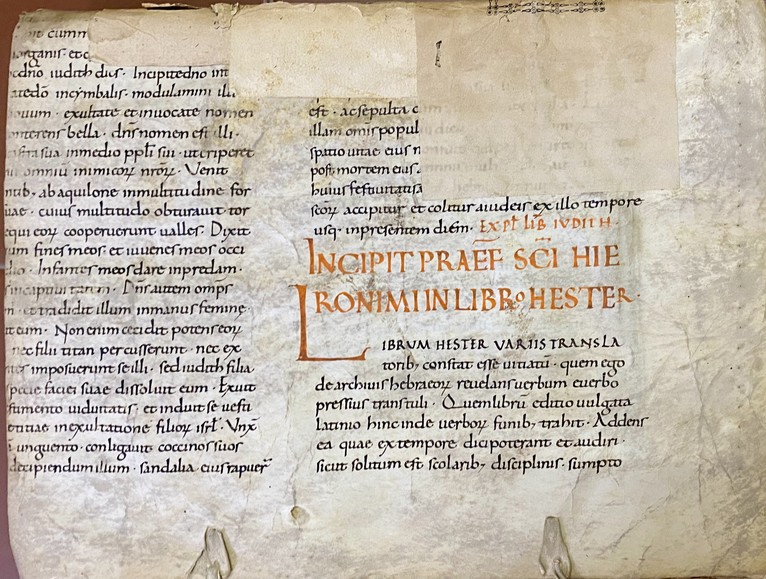 cumm
rganis· et c
dño iudith dics· Incipite dño in
ate dō incymbalis· modulamini illi
ouum· exultate et inuocate nomen
onterens bella· dñs nomen est illi·
tra sua inmedio ppli sui· ut eriperet
omniū inimicoꝝ nr̄oꝝ· Venit
ntib; ab aquilone inmultitudine for
uae· cuius multitudo obturauit tor
equi eoꝝ cooperuerunt ualles· Dixit
um fines meos· et iuuenes meos occi
dio· Infantes meos dare inpredam·
incaptiuitatem· Dñs autem omps
et tradidit illum inmanus femine
t eum· Non enim cecidit potens eoꝝ
nec filii titan percusserunt· nec ex
tes imposuerunt se illi· sed iudith filia
specie faciei suae dissoluit eum· Exuit
timento uiduitatis· et induit se uesti
etitiae inexultatione filioꝝ isrl̄· Vnx̄
unguento· conligauit coccinos suos
decipiendum illum· sandalia eius rapuer̄
est· ac sepulta e
illam omis popul
spatio uitae eius n
post mortem eius·
huius festiuitatis a
scōꝝ accipitur et colitur a iudeis ex illo tempore
usq· inpresentem diem· EXPL̄ LIB̄ IVDITH·
INCIPIT PRAEF̄ SC̄I HIE
RONIMI IN LIBRO HESTER·
LIBRUM HESTER VARIIS TRANSLA
torib; constat esse uitiatū· quem ego
de archiuis hebraeoꝝ reuelans uerbum e uerbo
pressius transtuli· Quem librū editio uulgata
latinio hinc inde uerboꝝ funib; trahit· Addens
ea quae extempore dici poterant et audiri·
sicut solitum est scolarib; disciplinis· sumpto